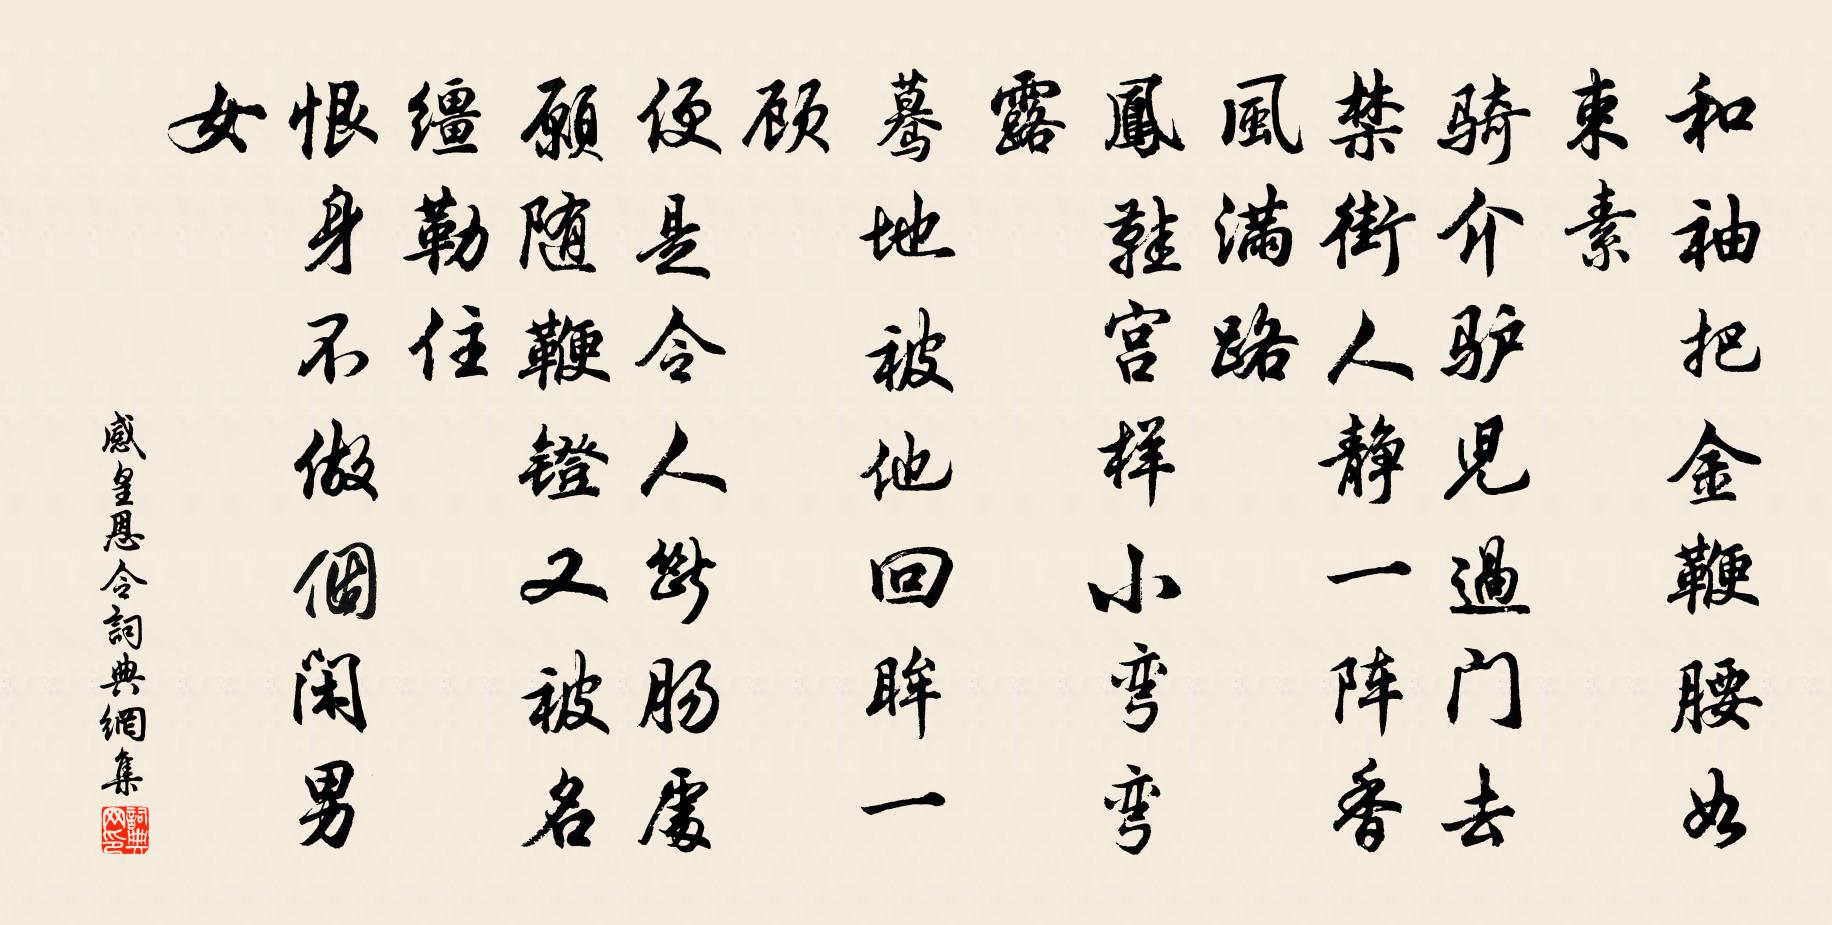 和袖把金鞭腰如
束素
骑介驴儿過门去
禁街人静一阵香
風满路
鳳鞋宫样小弯弯
露
蓦地被他回眸一
顾
便是令人断肠處
願随鞭镫又被名
缰勒住
恨身不做個闲男
女
感皇恩令詞典網集
詞典网印